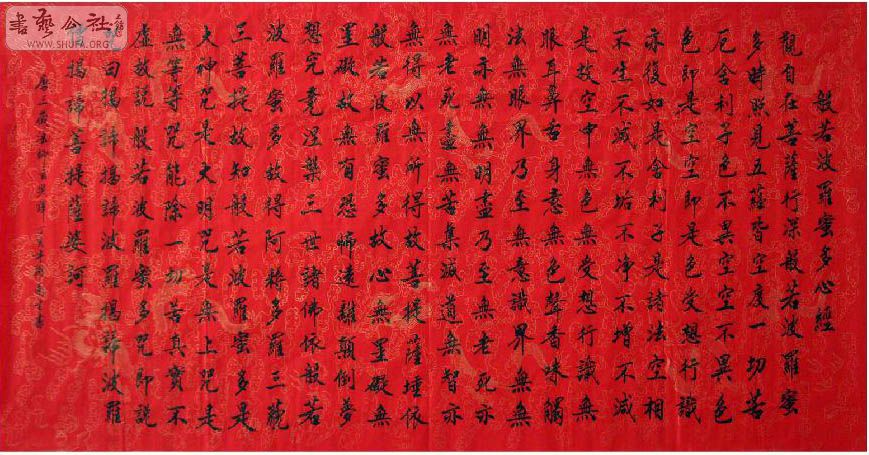 般若波羅蜜多心經
觀自在菩薩行深般若波羅蜜
多時照見五蘊皆空度一切苦
厄舍利子色不異空空不異色
色即是空空即是色受想行識
亦復如是舍利子是諸法空相
不生不滅不垢不净不增不減
是故空中無色無受想行識無
眼耳鼻舌身意無色聲香味觸
法無眼界乃至無意識界無無
明亦無無明盡乃至無老死亦
無老死盡無苦集滅道無智亦
無得以無所得故菩提薩埵依
般若波羅蜜多故心無罣礙無
罣礙故無有恐怖遠離顛倒夢
想究竟涅槃三世諸佛依般若
波羅蜜多故得阿耨多羅三藐
三菩提故知般若波羅蜜多是
大神咒是大明咒是無上咒是
無等等咒能除一切苦真實不
虛故說般若波羅蜜多咒即說
咒曰揭諦揭諦波羅揭諦波羅
僧揭諦菩提薩婆訶
唐三藏
書藝公社
www.SHUFA.ORG